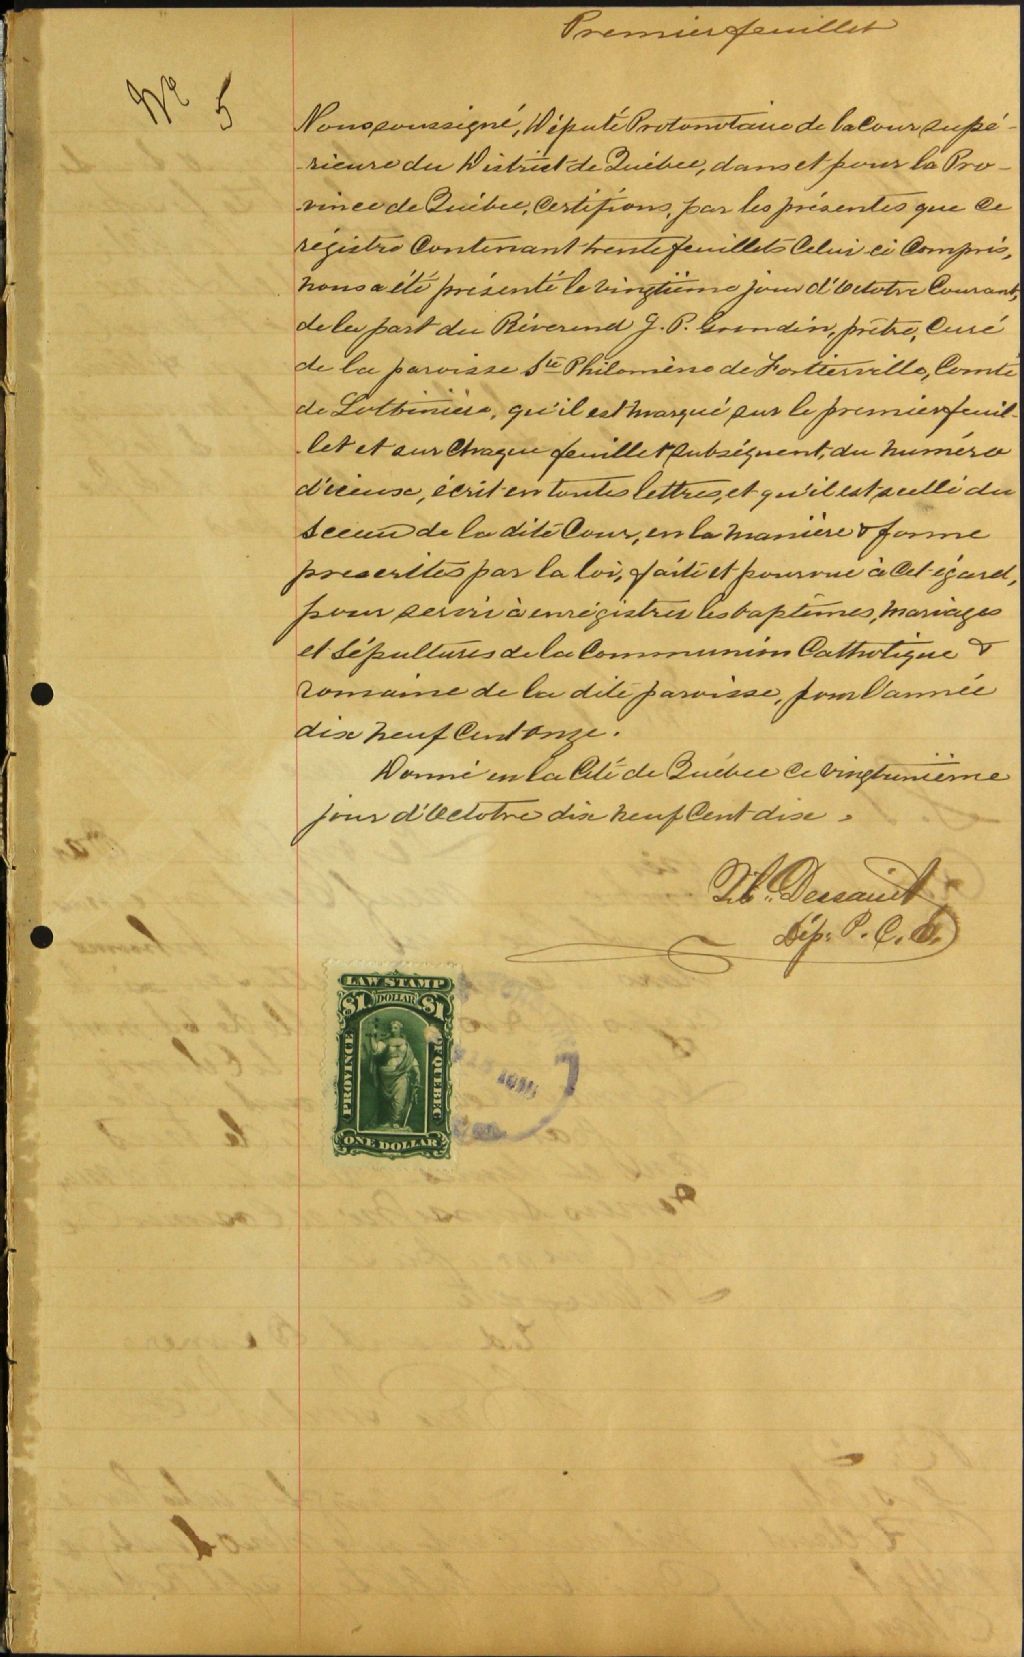 Premier feuillet
No 5
Nous soussigné, Député Protonotaire de la Cour supé-
-rieure du District de Québec, dans et pour la Pro-
-vince de Québec, Certifions, par les présentes que ce
régistre Contenant trente feuillets Celui-ci Compris,
nous a été présenté le vingtième jour d'Octobre Courant,
de la part du Révérend J. P. Grondin, prêtre, Curé
de la paroisse Ste Philomène de Fortierville, Comté
de Lotbinière, qu'il est marqué sur le premier feuil-
-let et sur chaque feuillet subséquent, du numéro
d'iceux, écrit en toutes lettres, et qu'il est scellé du
Sceau de la dite Cour, en la manière & forme
prescrites par la loi, faite et pourvue à cet égard,
pour servir à enrégistrer les baptêmes, mariages
et Sépultures de la Communion Catholique &
romaine de la dite paroisse, pour l'année
dix neuf Cent onze.
Donné en la Cité de Québec ce vingtunième
jour d'Octobre dix neuf Cent dix.
Dessaint
Dép. P. C. S.
LAW STAMP
$1. DOLLAR $1
PROVINCE OF QUEBEC
ONE DOLLAR